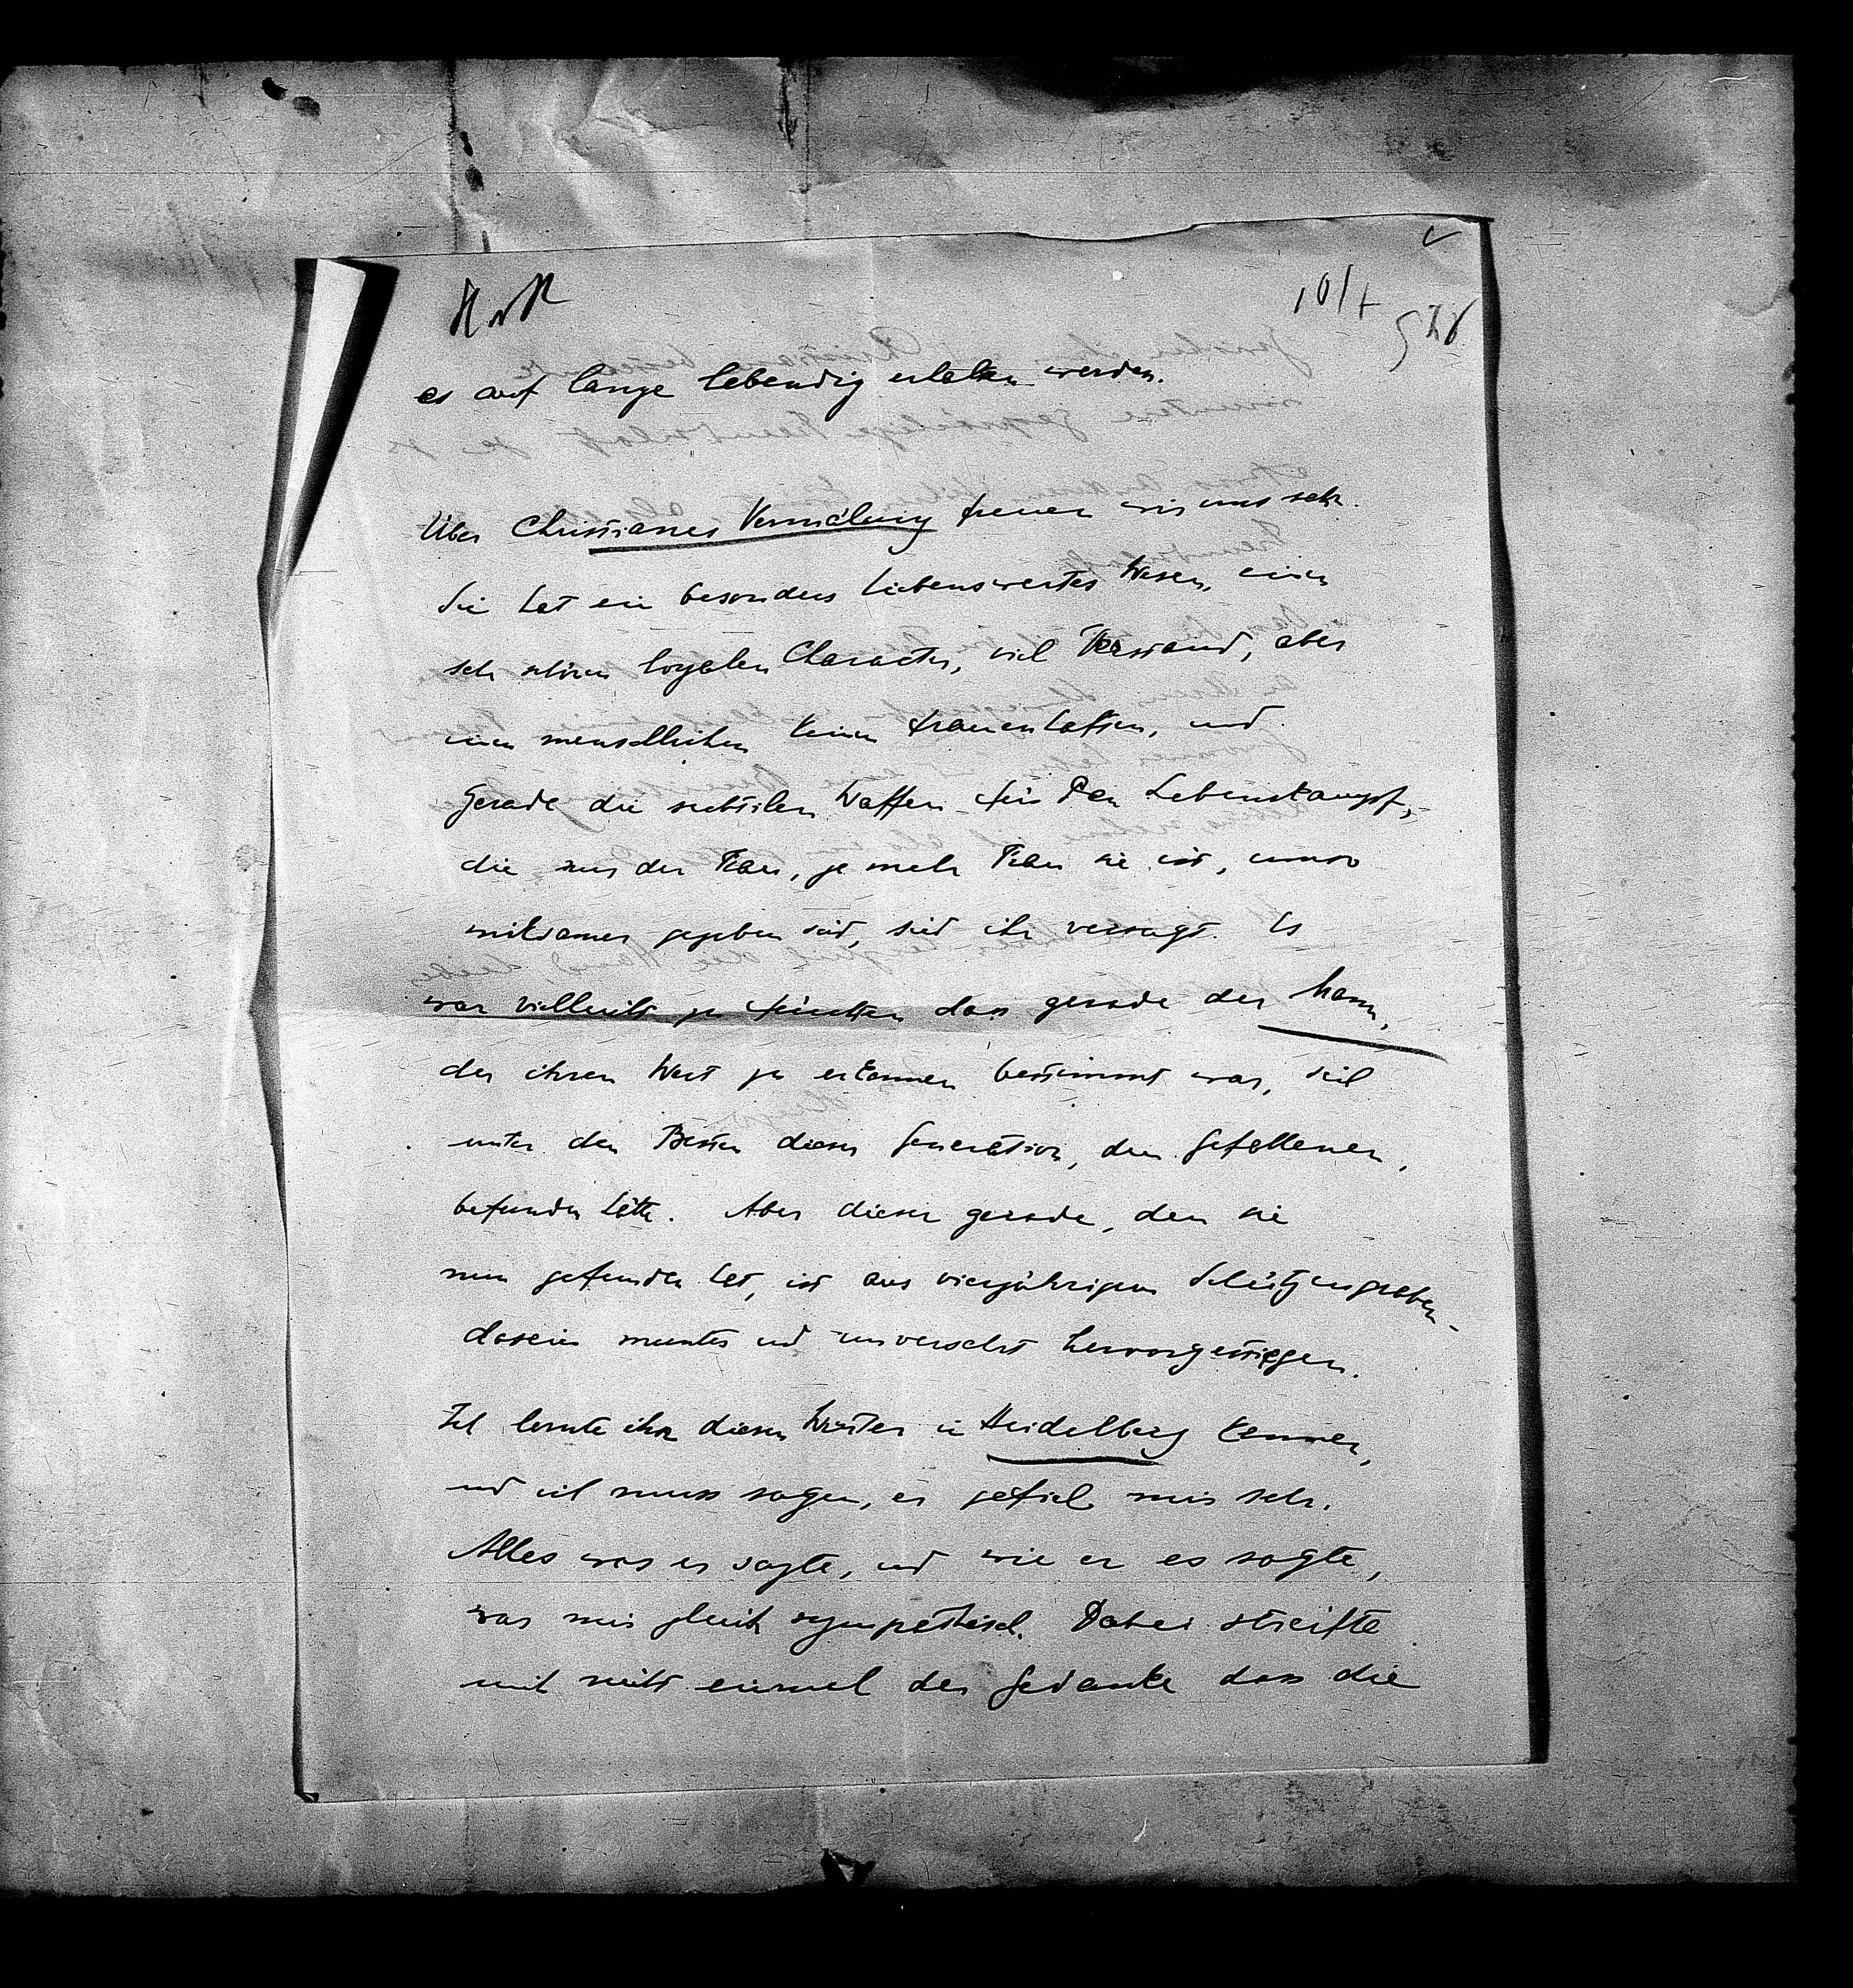 10/4
528
es auf lange lebendig erhalten werden.
Über Christianes Vermälung freuen wir uns sehr.
Sie hat ein besonders liebenswertes Wesen, einen
sehr schönen loyalen Character, viel Verstand, aber
einen menschlichen keinen frauenhaften, und
gerade die subtilen Waffen für den Lebenskampf,
die nur der Frau, je mehr Frau sie ist, umso
wirksamer gegeben sind, sind ihr versagt. Es
war vielleicht zu fürchten dass gerade der Mann,
der ihren Wert zu erkennen bestimmt war, sich
unter den Besten dieser Generation, den Gefallenen,
befunden hätte. Aber dieser gerade, den sie
nun gefunden hat, ist aus vierjährigem Schützengraben-
dasein munter und unversehrt hervorgestiegen.
Ich lernte ihn diesen Winter in Heidelberg kennen,
und ich muss sagen, er gefiel mir sehr.
Alles was er sagte, und wie er es sagte,
war mir gleich sympathisch. Dabei streifte
mich nicht einmal der Gedanke dass die